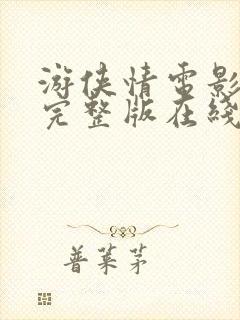 游侠情电影
完整版在线
普莱茅